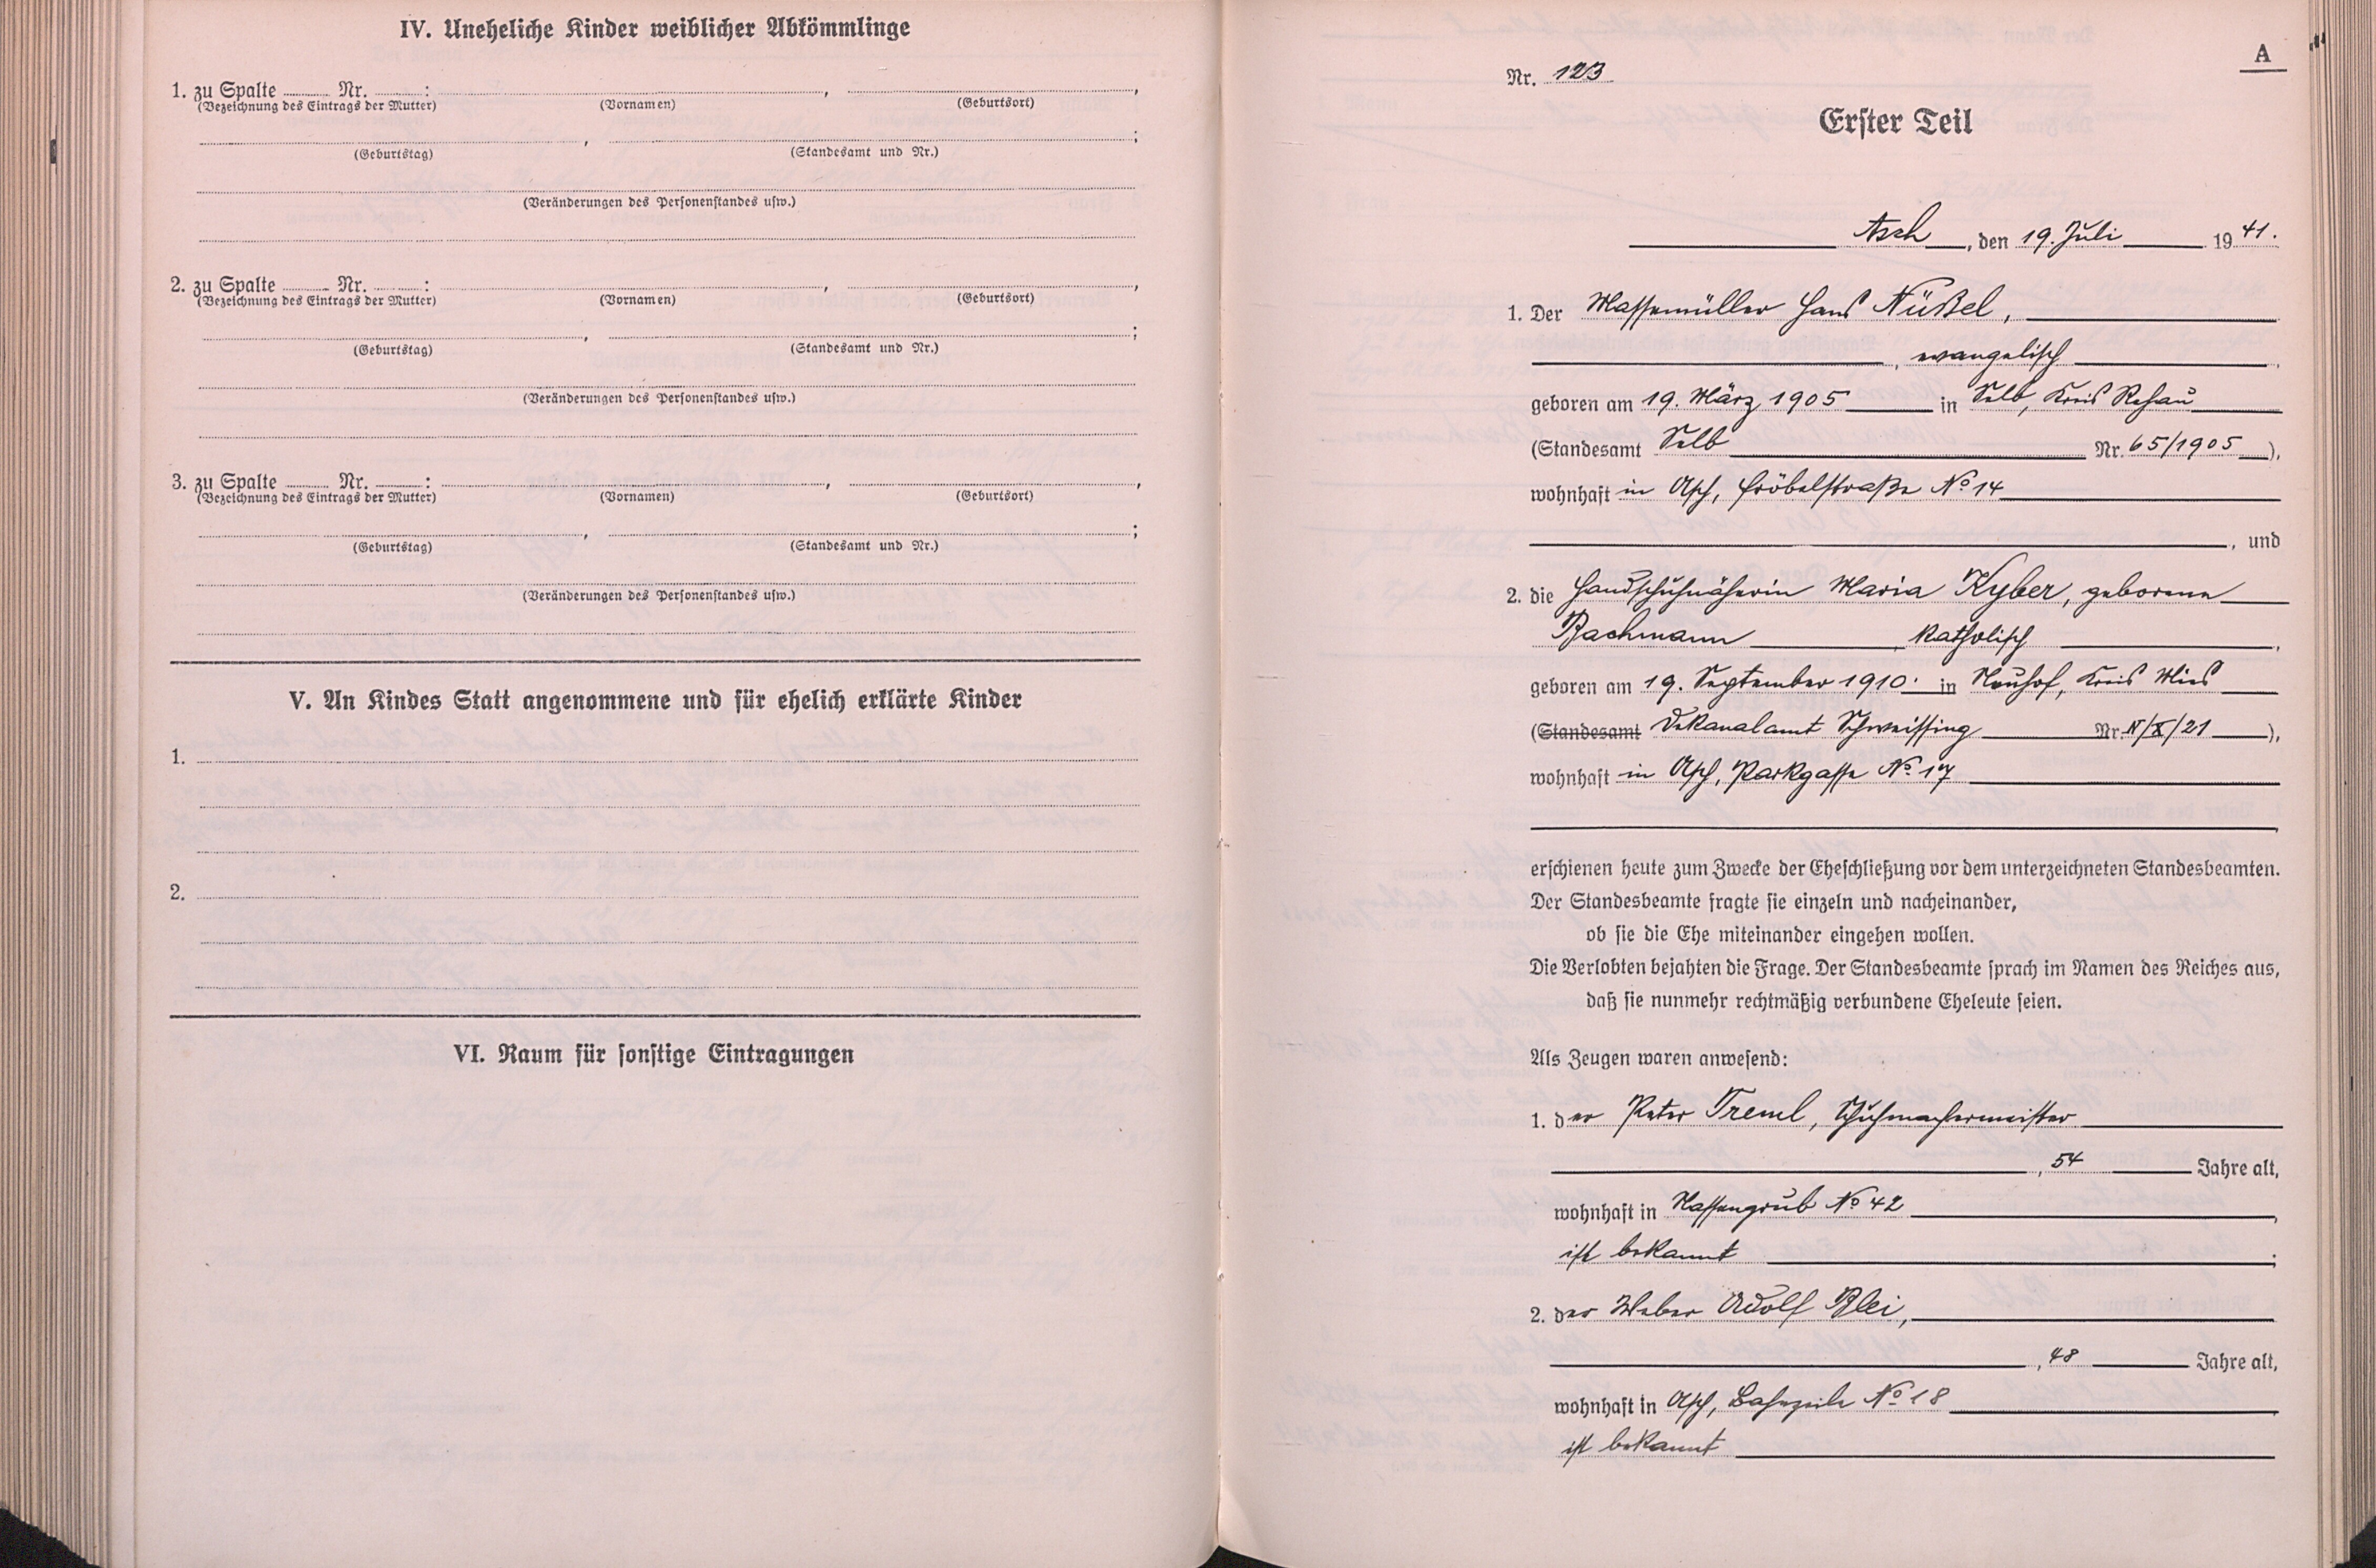 IV. Uneheliche Kinder weiblicher Abkömmlinge
1. zu Spalte ........ Nr. ........ :
(Bezeichnung des Eintrags der Mutter) (Vornamen) (Geburtsort)
(Geburtstag) (Standesamt und Nr.)
(Veränderungen des Personenstandes usw.)
2. zu Spalte ........ Nr. ........ :
(Bezeichnung des Eintrags der Mutter) (Vornamen) (Geburtsort)
(Geburtstag) (Standesamt und Nr.)
(Veränderungen des Personenstandes usw.)
3. zu Spalte ........ Nr. ........ :
(Bezeichnung des Eintrags der Mutter) (Vornamen) (Geburtsort)
(Geburtstag) (Standesamt und Nr.)
(Veränderungen des Personenstandes usw.)
V. An Kindes Statt angenommene und für ehelich erklärte Kinder
1.
2.
VI. Raum für sonstige Eintragungen
A
Nr. 123
Erster Teil
Asch, den 19. Juli 1941.
1. Der Massemüller Hans Nüßel,
, evangelisch,
geboren am 19. März 1905 in Selb, Kreis Rehau
(Standesamt Selb Nr. 65/1905),
wohnhaft in Asch, Fröbelstraße No 14
, und
2. die Handschuhnäherin Maria Kyber, geborene
Bachmann, katholisch,
geboren am 19. September 1910 in Neuhof, Kreis Mies
(Standesamt Dekanalamt Schweissing Nr. IV/X/21),
wohnhaft in Asch, Parkgasse No 17
erschienen heute zum Zwecke der Eheschließung vor dem unterzeichneten Standesbeamten.
Der Standesbeamte fragte sie einzeln und nacheinander,
ob sie die Ehe miteinander eingehen wollen.
Die Verlobten bejahten die Frage. Der Standesbeamte sprach im Namen des Reiches aus,
daß sie nunmehr rechtmäßig verbundene Eheleute seien.
Als Zeugen waren anwesend:
1. der Peter Treml, Schuhmachermeister
, 54 Jahre alt,
wohnhaft in Nassengrub No 42,
ist bekannt;
2. der Weber Adolf Blei,
, 48 Jahre alt,
wohnhaft in Asch, Bahnzeile No 18,
ist bekannt